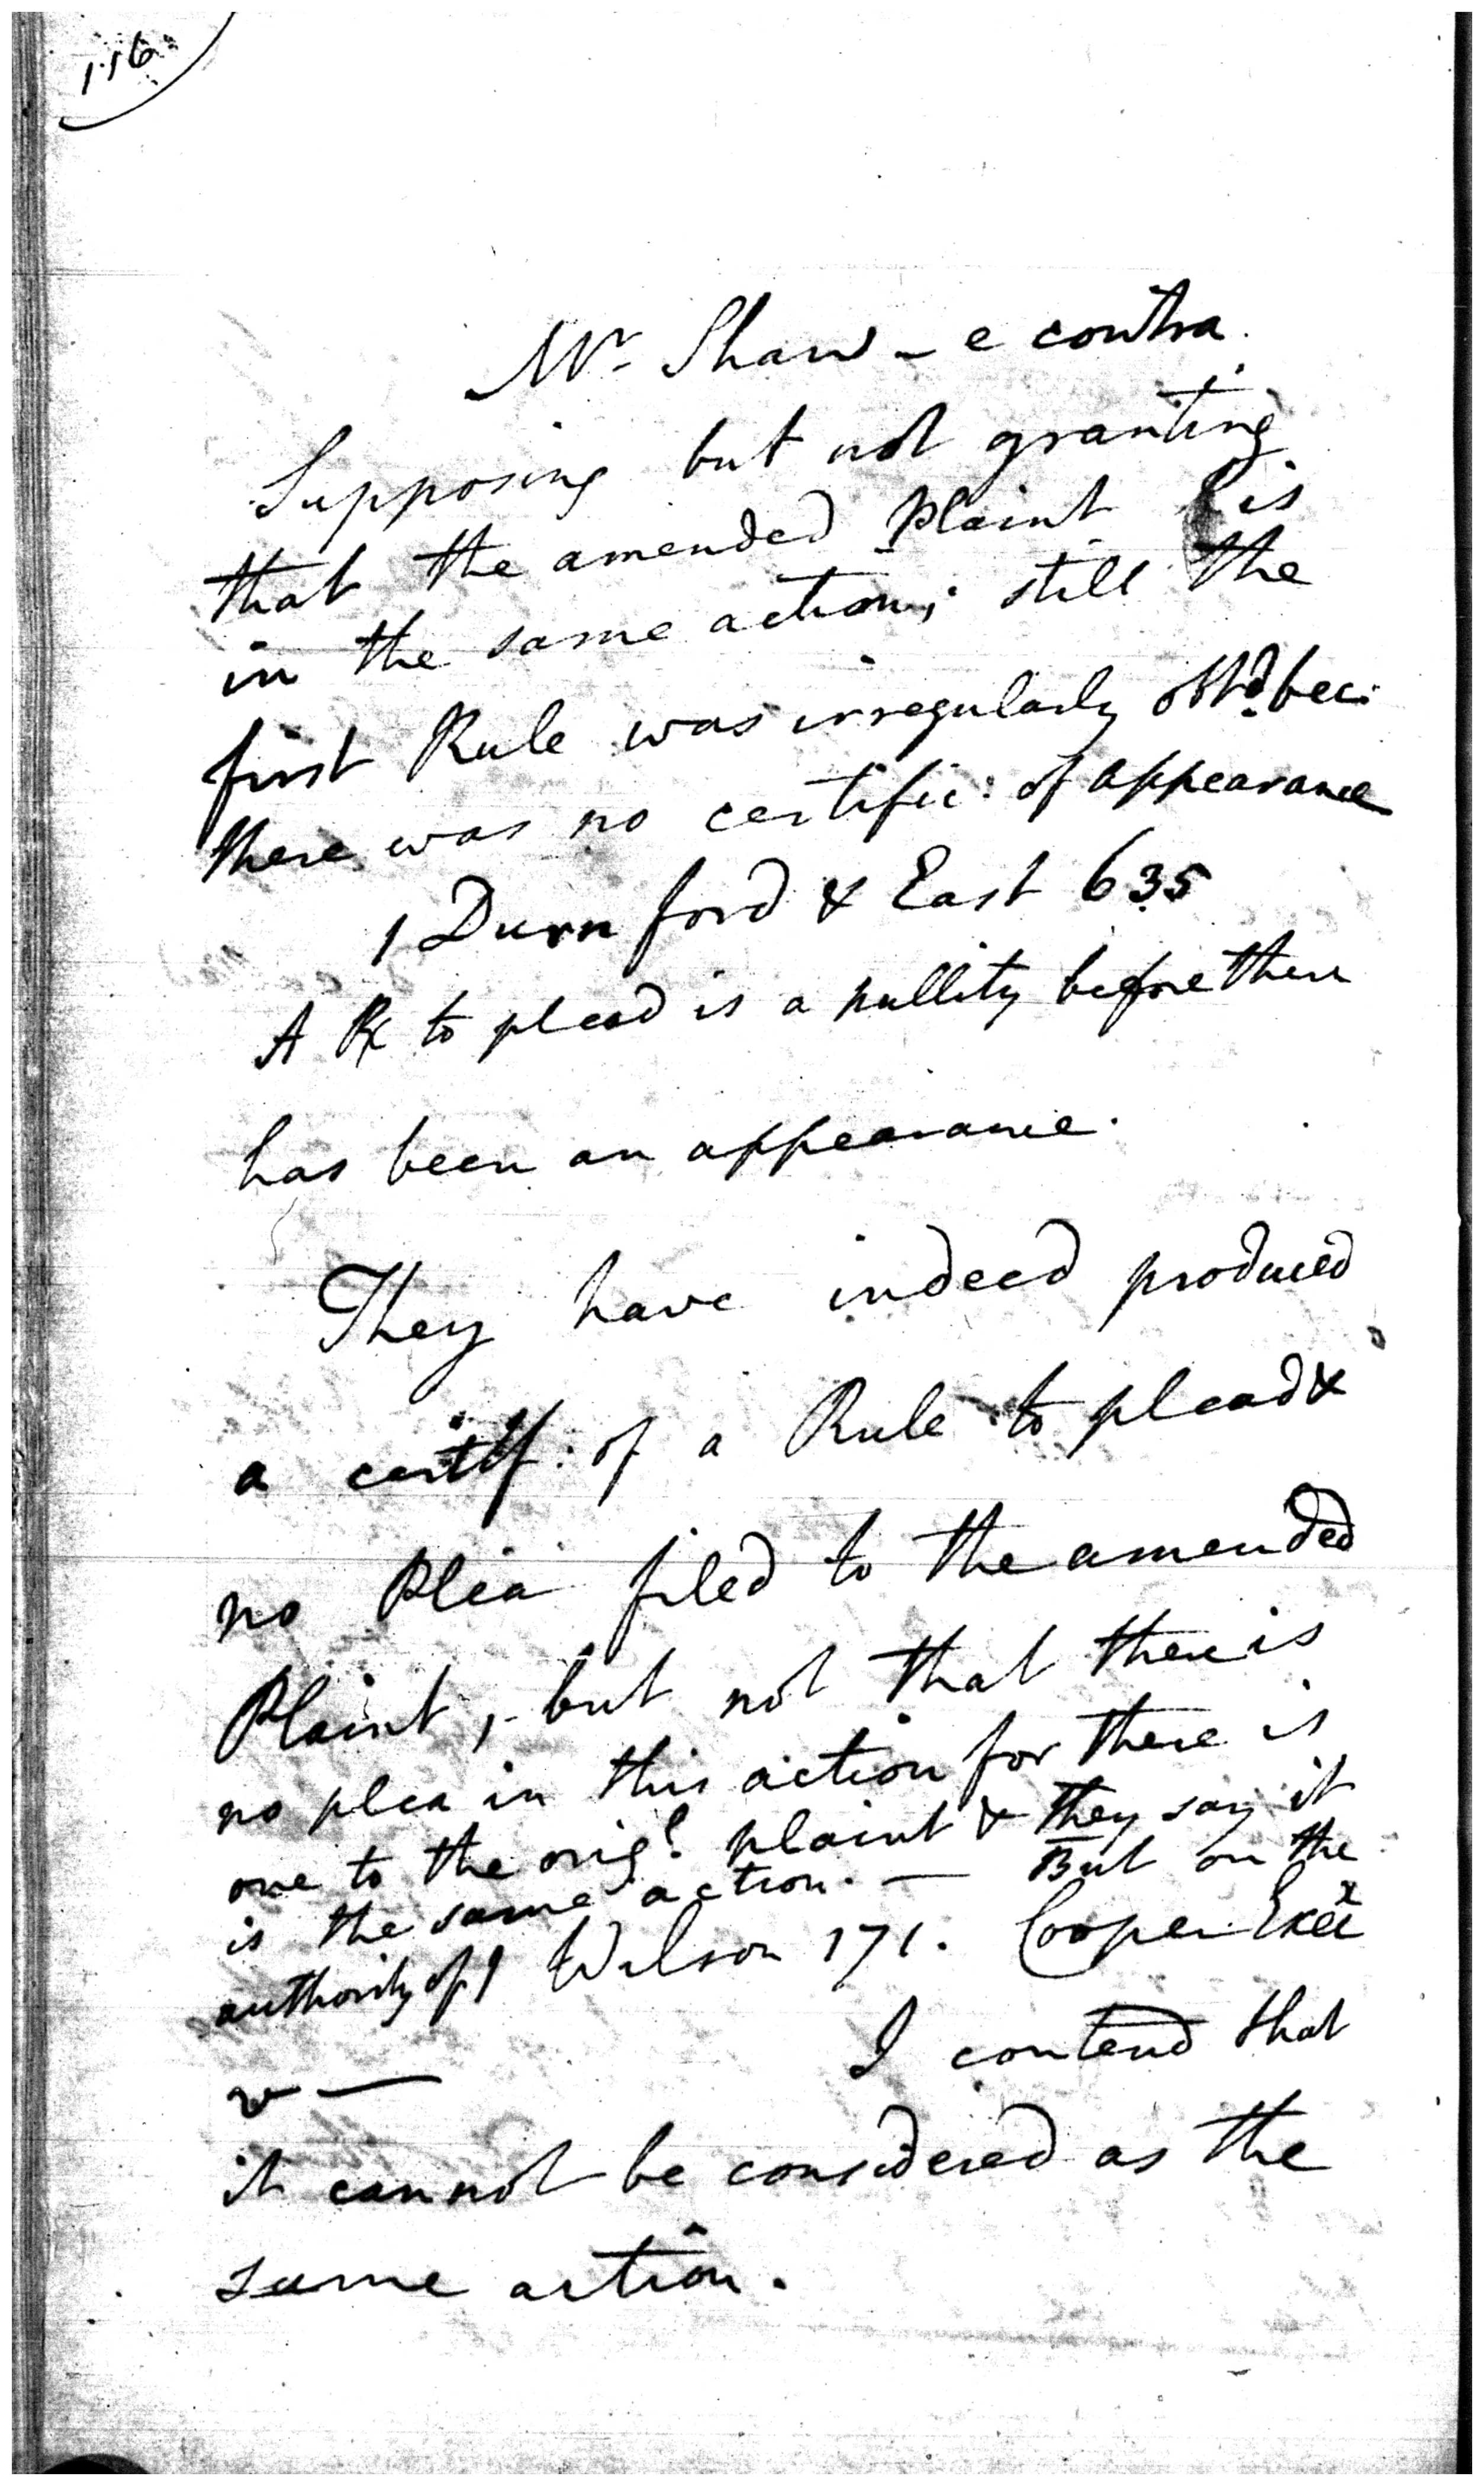 116
Mr Shaw - e contra.
Supposing but not granting
that the amended Plaint is
in the same action; still the
first Rule was irregularly obtd. bec:
there was no certific: of appearance
1 Durnford & East 635
A Rx to plead is a nullity before there
has been an appearance.
They have indeed produced
a certif: of a Rule to plead &
no Plea filed to the amended
Plaint, but not that there is
no plea in this action for there is
one to the origl plaint & they say it
is the same action. — But on the
authority of 1 Wilson 171. Cooper Exer
v —            I contend that
it cannot be considered as the
same action.